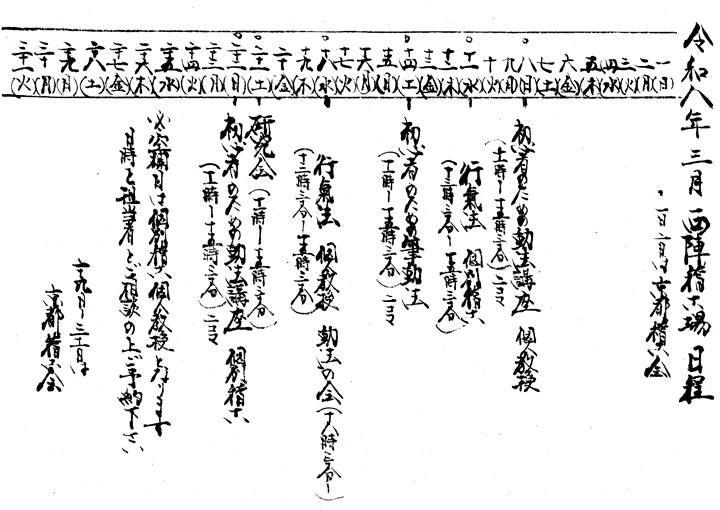 令和八年 三月 西陣稽古場 日程
・一日二月は京都稽古会
一(日)
二(月)
三(火)
四(水)
五(木)
六(金)
七(土)
八(日)
九(月)
十(火)
十一(水)
十二(木)
十三(金)
十四(土)
十五(日)
十六(月)
十七(火)
十八(水)
十九(木)
二十(金)
二十一(土)
二十二(日)
二十三(月)
二十四(火)
二十五(水)
二十六(木)
二十七(金)
二十八(土)
二十九(日)
三十(月)
三十一(火)
初心者のための動法講座 個人教授
(十一時〜十五時三〇分) 二コマ
行氣法 個別稽古
(十三時三〇分〜十五時三〇分)
初心者のための筆動法
(十一時〜十五時三〇分) 二コマ
行氣法 個人教授 動法の会(十八時三〇分〜)
(十三時三〇分〜十五時三〇分)
研究会(十一時〜十五時三〇分)
初心者のための動法講座 個別稽古
(十一時〜十五時三〇分) 二コマ
※空欄日は個別稽古、個人教授となります
日時を担当者とご相談の上、ご予約下さい
二十九日〜三十一日は
京都稽古会